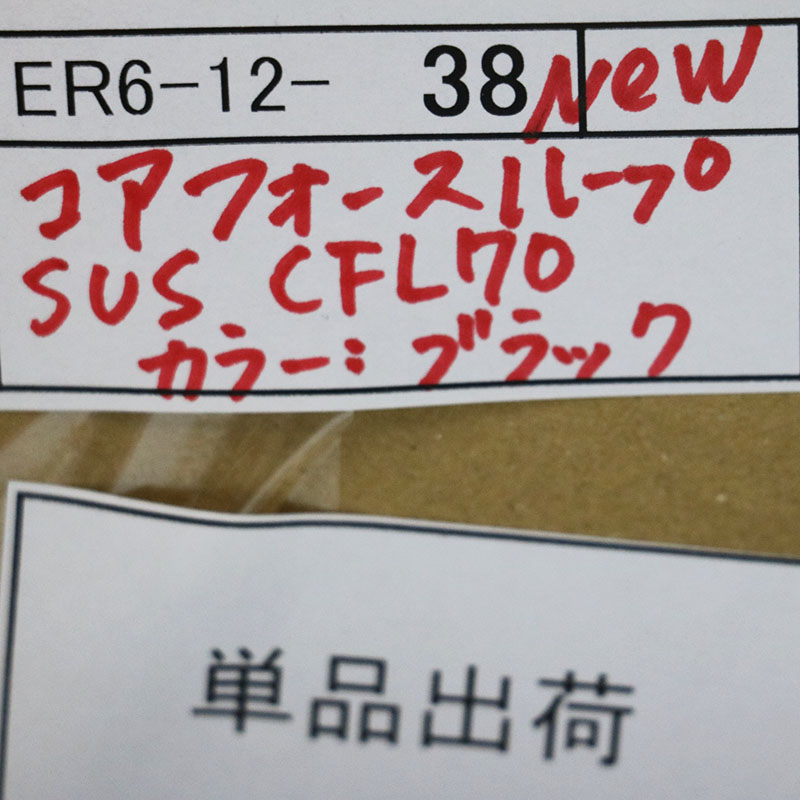 ER6-12- 38 New
コアフォースループ
SUS CFL70
カラー：ブラック
単品出荷